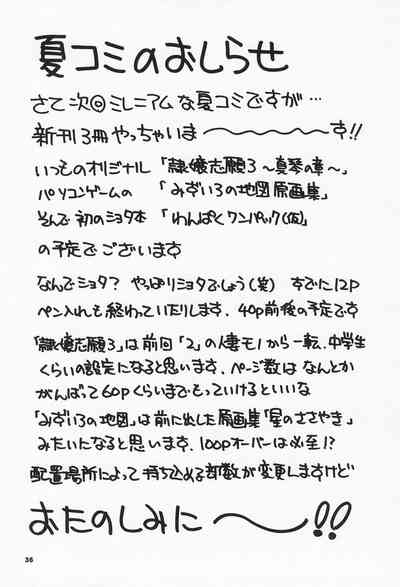 夏コミのおしらせ
さて次◎ミレニアムな夏コミですが…
新刊3冊やっちゃいま〜〜〜す!!
いつものオリジナル「隷嬢志願3〜真琴の章〜」
パソコンゲームの「みずいろの地図原画集」
そんで初のショタ本「わんぱくワンパック(仮)」
の予定でございます
なんでショタ? やっぱりショタでしょう(笑) すでに12P
ペン入れも終わっていたりします. 40p前後の予定です
「隷嬢志願3」は前回「2」の人妻モノから一転、中学生
くらいの設定になると思います. ページ数はなんとか
がんばって60pくらいまでもっていけるといいな
「みずいろの地図」は前に出した原画集「星のささやき」
みたいになると思います. 100pオーバーは必至!?
配置場所によって持ち込める部数が変更しますけど
おたのしみに〜!!
36